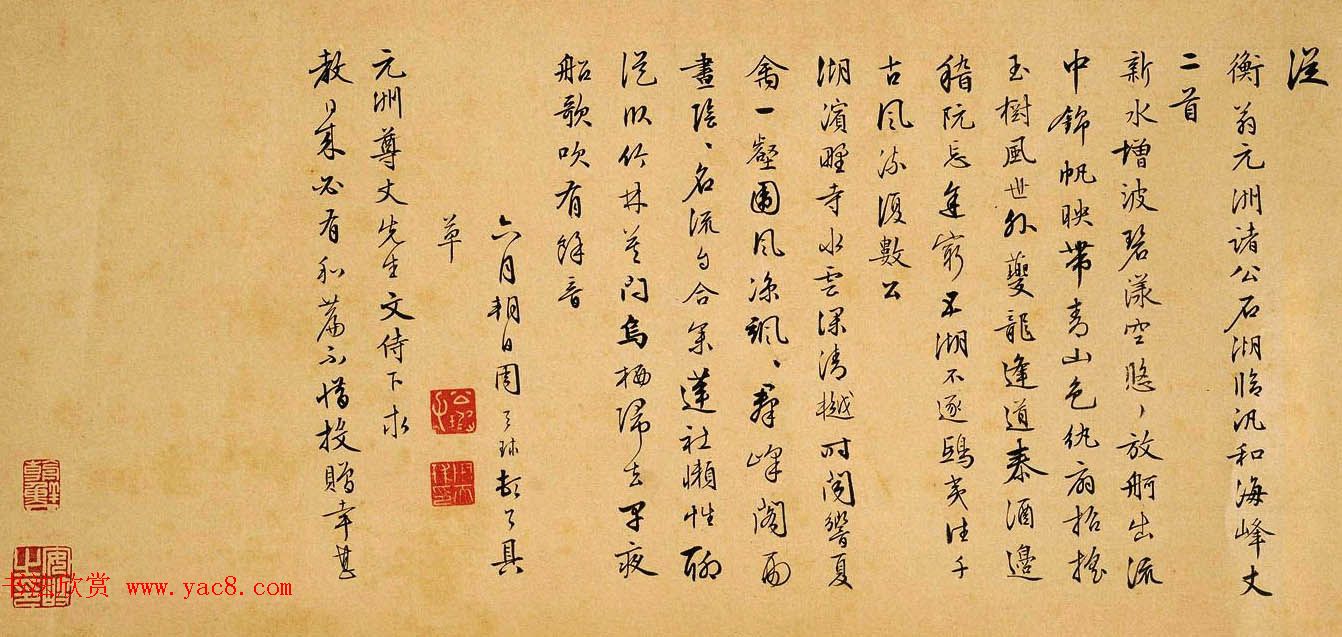 從
衡翁元洲諸公石湖臨汎和海峰丈
二首
新水增波碧漾空悠〻放舸出流
中錦帆映帶青山色紈扇招搖
玉樹風世外夔龍逢道泰酒邊
嵇阮忘年窮五湖不逐鴟夷往千
古風流復數公
湖濱野寺水雲深清樾时聞響夏
禽一壑風涼颯〻群峰閣雨
晝陰〻名流自合蓮社懶性聊
從似竹林莫问烏栖歸去早夜
船歌吹有餘音
六月朔日周天球頓首具
草
元洲尊丈先生文侍下求
教同來必有和篇不惜投贈幸甚
欣赏 www.yac8.com